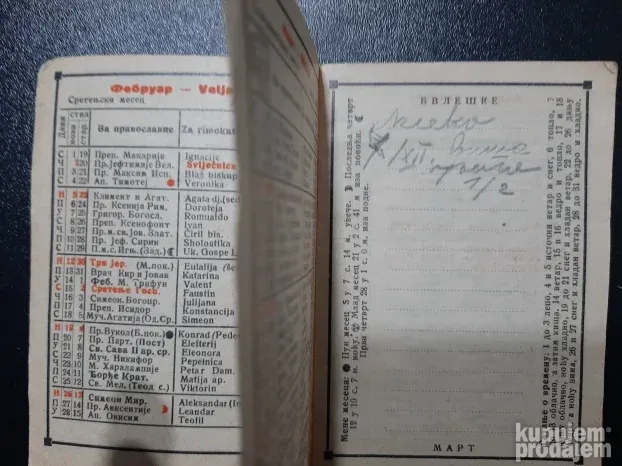 Фебруар — Velja
Сретењски месец
Дани
стил
нови
стар.
За православне
Za rimokat
С 1 19 Преп. Макарије Ignacije
Ч 2 20 Пр. Јефтимије Вел. Svijećnica
П 3 21 Пр. Максим Исп. Blaž biskup
С 4 22 Ап. Тимотеј Veronika
Н 5 23 Климент и Агат. Agata dj. (sed
П 6 24 Пр. Ксенија Рим. Doroteja
У 7 25 Григор. Богосл. Romualdo
С 8 26 Преп. Ксенофонт Ivan
Ч 9 27 Пр.м.св.Јов. Злат. Ciril bis.
П 10 28 Пр. Јеф. Сирин Sholostika
С 11 29 П.м.с. Игњ. (Зад.) Uk. Gospe L
Н 12 30 Три јер. (М.пок.) Eulalija
П 13 31 Врач Кир и Јован Katarina
У 14 1 Феб. М. Трифун Valent
С 15 2 Сретење Госп. Faustin
Ч 16 3 Симеон. Богопр. Julijana
П 17 4 Преп. Исидор Konstancija
С 18 5 Муч. Агатија (Од.Ср. Simeon
Н 19 6 Пр. Вукол (Б.пок.) Konrad (Pede
П 20 7 Пр. Парт. (Пост) Elefterij
У 21 8 Св. Сава II ар. ср Eleonora
С 22 9 Муч. Никифор Pepelnica
Ч 23 10 М. Харалампије Petar Dam.
П 24 11 Ђорђе Крат. Matija ap.
С 25 12 Св. Мел. (Теод с.) Viktorin
Н 26 13 Симеон Мир. Aleksandar (Iz
П 27 14 Пр. Авксентије Leandar
У 28 15 Ап. Онисим Teofil
БЕЛЕШКЕ
Млеко
XII.
1/2
Мене месеца: Пун месец 5 у 7 с. 14 м. увече. Последња четврт
12 у 10 с. 7 м. ноћу. Млад месец 21 у 2 с. 41 м. иза поноћи.
Прва четврт 28 у 1 с. 7 м. иза подне.
о времену: 1 до 3 лепо, 4 и 5 источни ветар и снег, 6 топло, 7
облачно, а затим киша, 14 ветар, 15 и 16 ведро и топло, 17 и 18
облачно, ноћу хладно, 19 до 21 снег и хладан ветар, 22 до 26 дању
а ноћу зима, 26 и 27 снег и хладан ветар, 28 до 31 ведро и хладно.
МАРТ
kupujem
prodajem